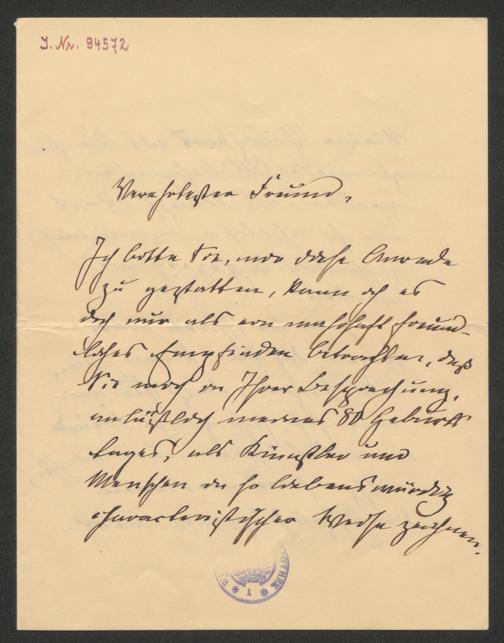 I. Nr. 94572
Verehrtester Freund,
Ich bitte Sie, mir diese Anrede
zu gestatten, kann ich es
doch nur als ein wahrhaft freund-
liches Empfinden betrachten, daß
Sie mich in Ihrer Besprechung,
anläßlich meines 80 Geburts
tages, als Künstler und
Menschen in so liebenswürdig
characteristischer Weise zeichnen.